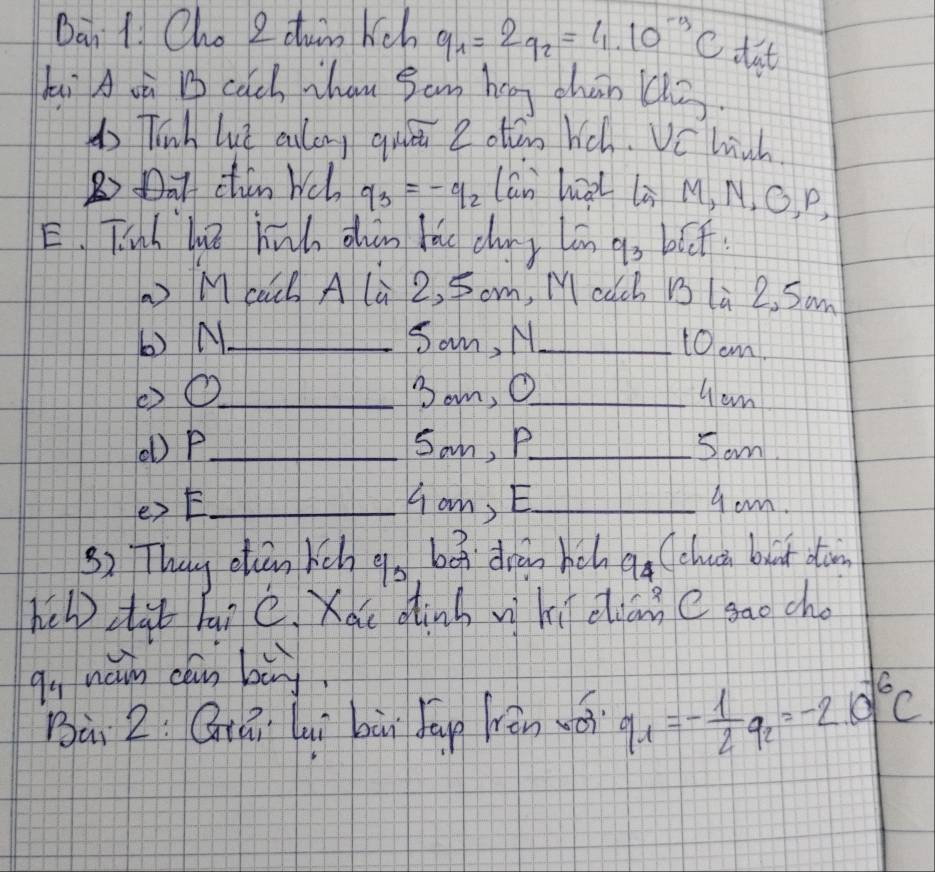 Bài 1: Cho 2 điện tích q₁ = 2q₂ = 4.10⁻⁹ C đặt
tại A và B cách nhau 5cm trong chân không.
1) Tính lực culong giữa 2 điện tích. Vẽ hình.
2) Đặt điện tích q₃ = -q₂ lần lượt là M, N, O, P,
E. Tính lực tĩnh điện tác dụng lên q₃ biết:
a) M cách A là 2,5cm, M cách B là 2,5cm
b) N_______ 5cm, N_______ 10cm.
c) O_______ 3cm, O_______ 4cm
d) P_______ 5cm, P_______ 5cm.
e) E_______ 4cm, E_______ 4cm.
3) Thay điện tích q₃ bởi điện tích q₄ (chưa biết điện
tích) đặt tại C. Xác định vị trí điểm C sao cho
q₄ nằm cân bằng.
Bài 2: Giải lại bài tập trên với q₁ = -1/2 q₂ = -2.10⁻⁶C.